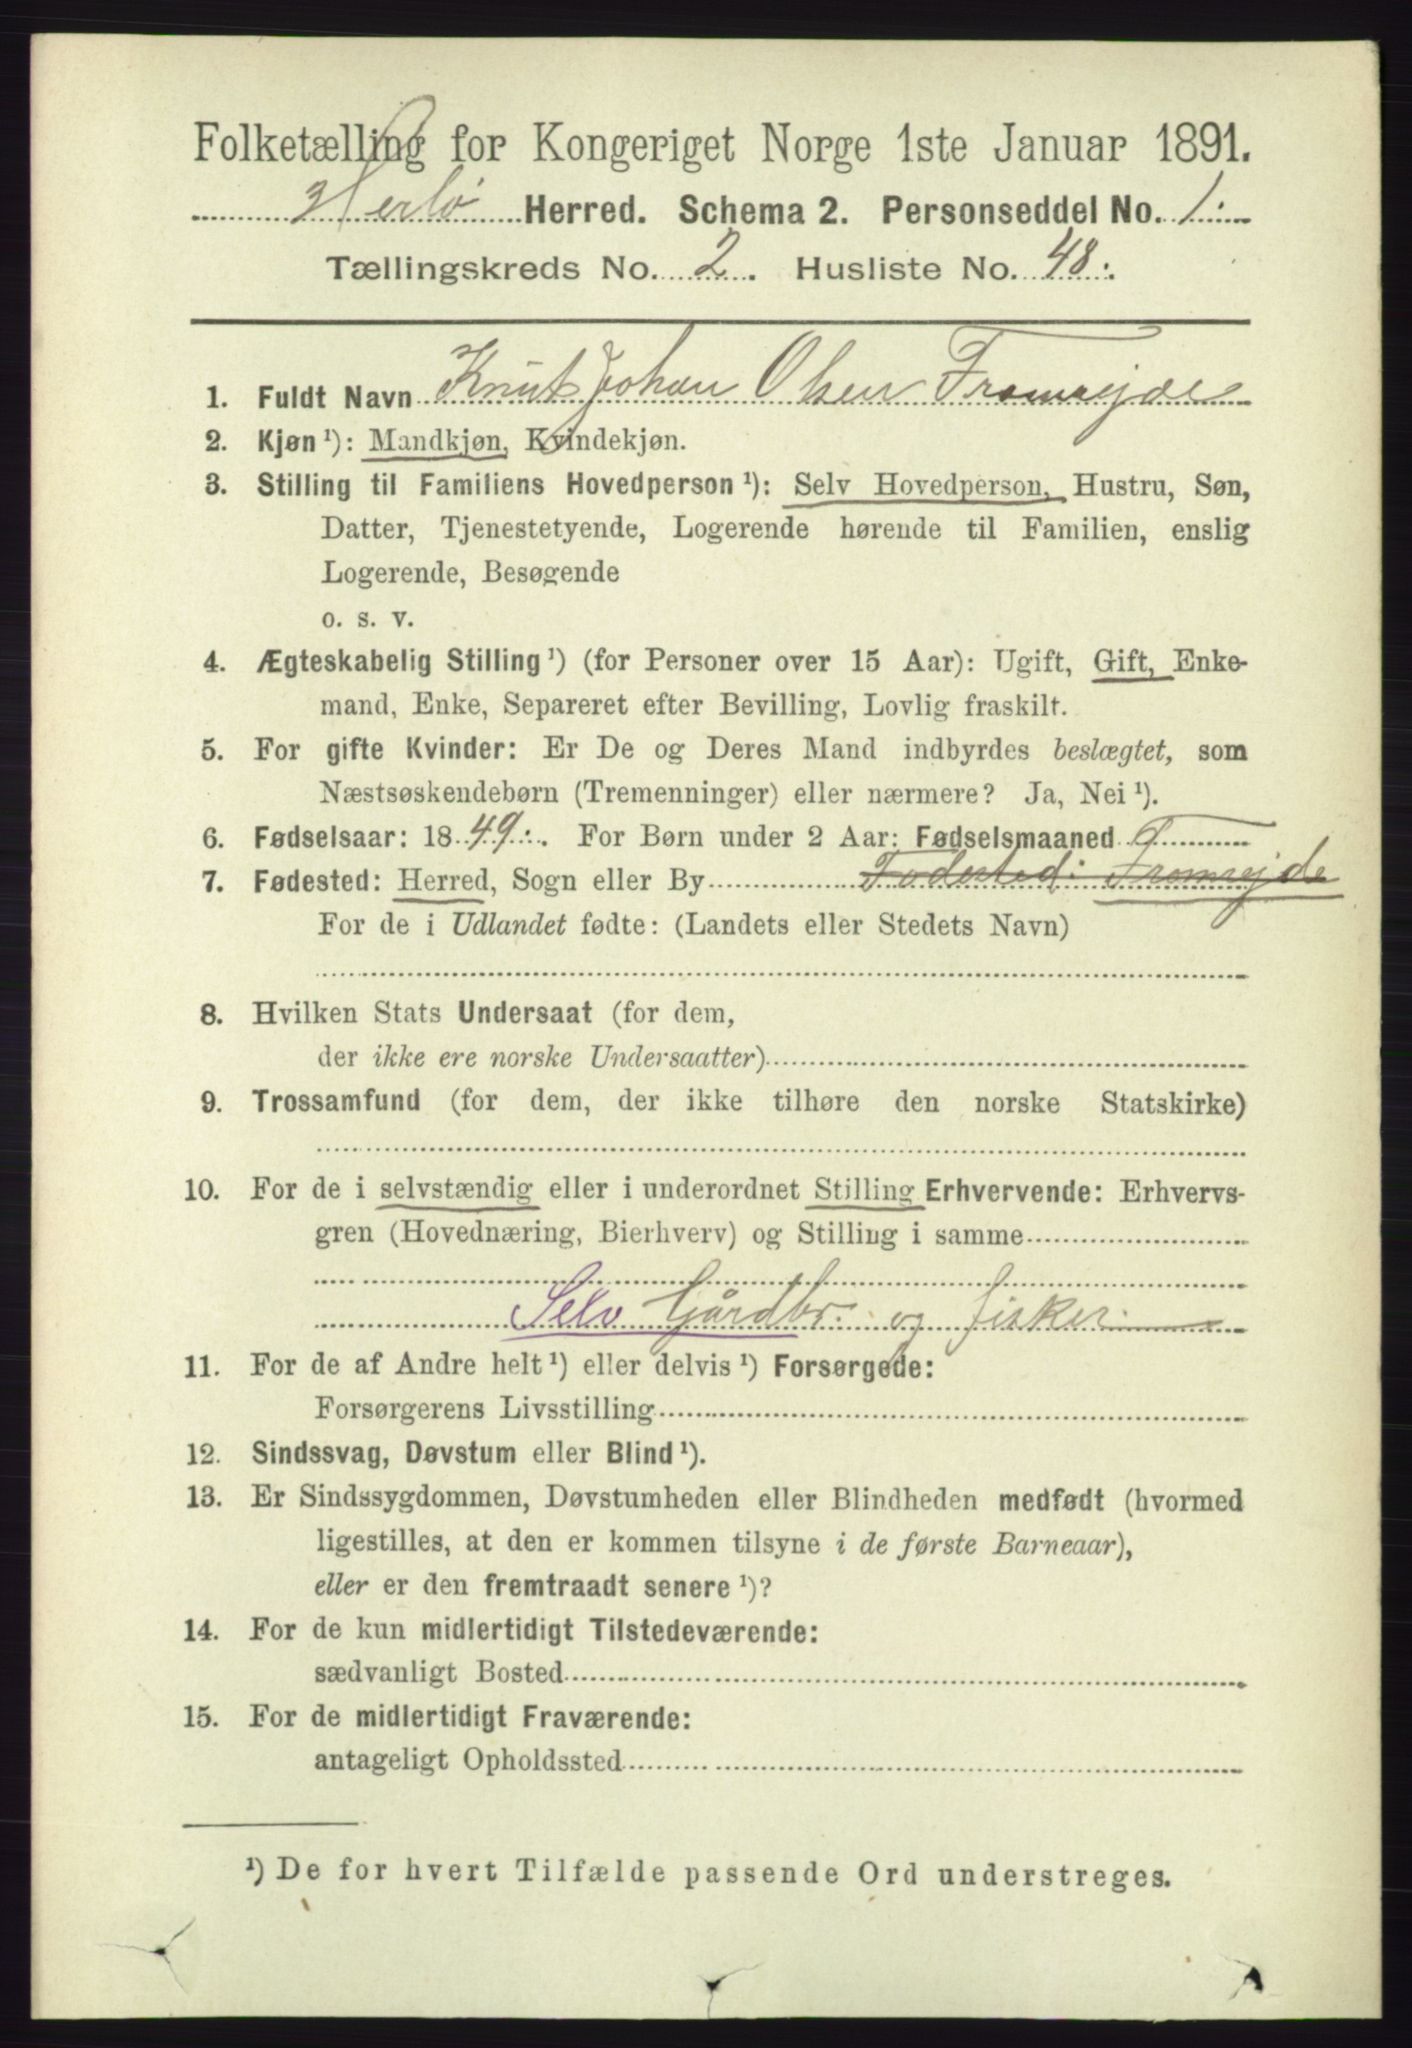 Folketælling for Kongeriget Norge 1ste Januar 1891.
Herlø Herred. Schema 2. Personseddel No. 1.
Tællingskreds No. 2. Husliste No. 48.
1. Fuldt Navn Knut Johan Olsen Fromrejde
2. Kjøn ¹): Mandkjøn, Kvindekjøn.
3. Stilling til Familiens Hovedperson ¹): Selv Hovedperson, Hustru, Søn,
Datter, Tjenestetyende, Logerende hørende til Familien, enslig
Logerende, Besøgende
o. s. v.
4. Ægteskabelig Stilling ¹) (for Personer over 15 Aar): Ugift, Gift, Enke-
mand, Enke, Separeret efter Bevilling, Lovlig fraskilt.
5. For gifte Kvinder: Er De og Deres Mand indbyrdes beslægtet, som
Næstsøskendebørn (Tremenninger) eller nærmere? Ja, Nei ¹).
6. Fødselsaar: 1849. For Børn under 2 Aar: Fødselsmaaned
7. Fødested: Herred, Sogn eller By Fødested: Fromrejde
For de i Udlandet fødte: (Landets eller Stedets Navn)
8. Hvilken Stats Undersaat (for dem,
der ikke ere norske Undersaatter)
9. Trossamfund (for dem, der ikke tilhøre den norske Statskirke)
10. For de i selvstændig eller i underordnet Stilling Erhvervende: Erhvervs-
gren (Hovednæring, Bierhverv) og Stilling i samme
Selv Gårdbr. og fisker.
11. For de af Andre helt ¹) eller delvis ¹) Forsørgede:
Forsørgerens Livsstilling
12. Sindssvag, Døvstum eller Blind ¹).
13. Er Sindssygdommen, Døvstumheden eller Blindheden medfødt (hvormed
ligestilles, at den er kommen tilsyne i de første Barneaar),
eller er den fremtraadt senere ¹)?
14. For de kun midlertidigt Tilstedeværende:
sædvanligt Bosted
15. For de midlertidigt Fraværende:
antageligt Opholdssted
¹) De for hvert Tilfælde passende Ord understreges.